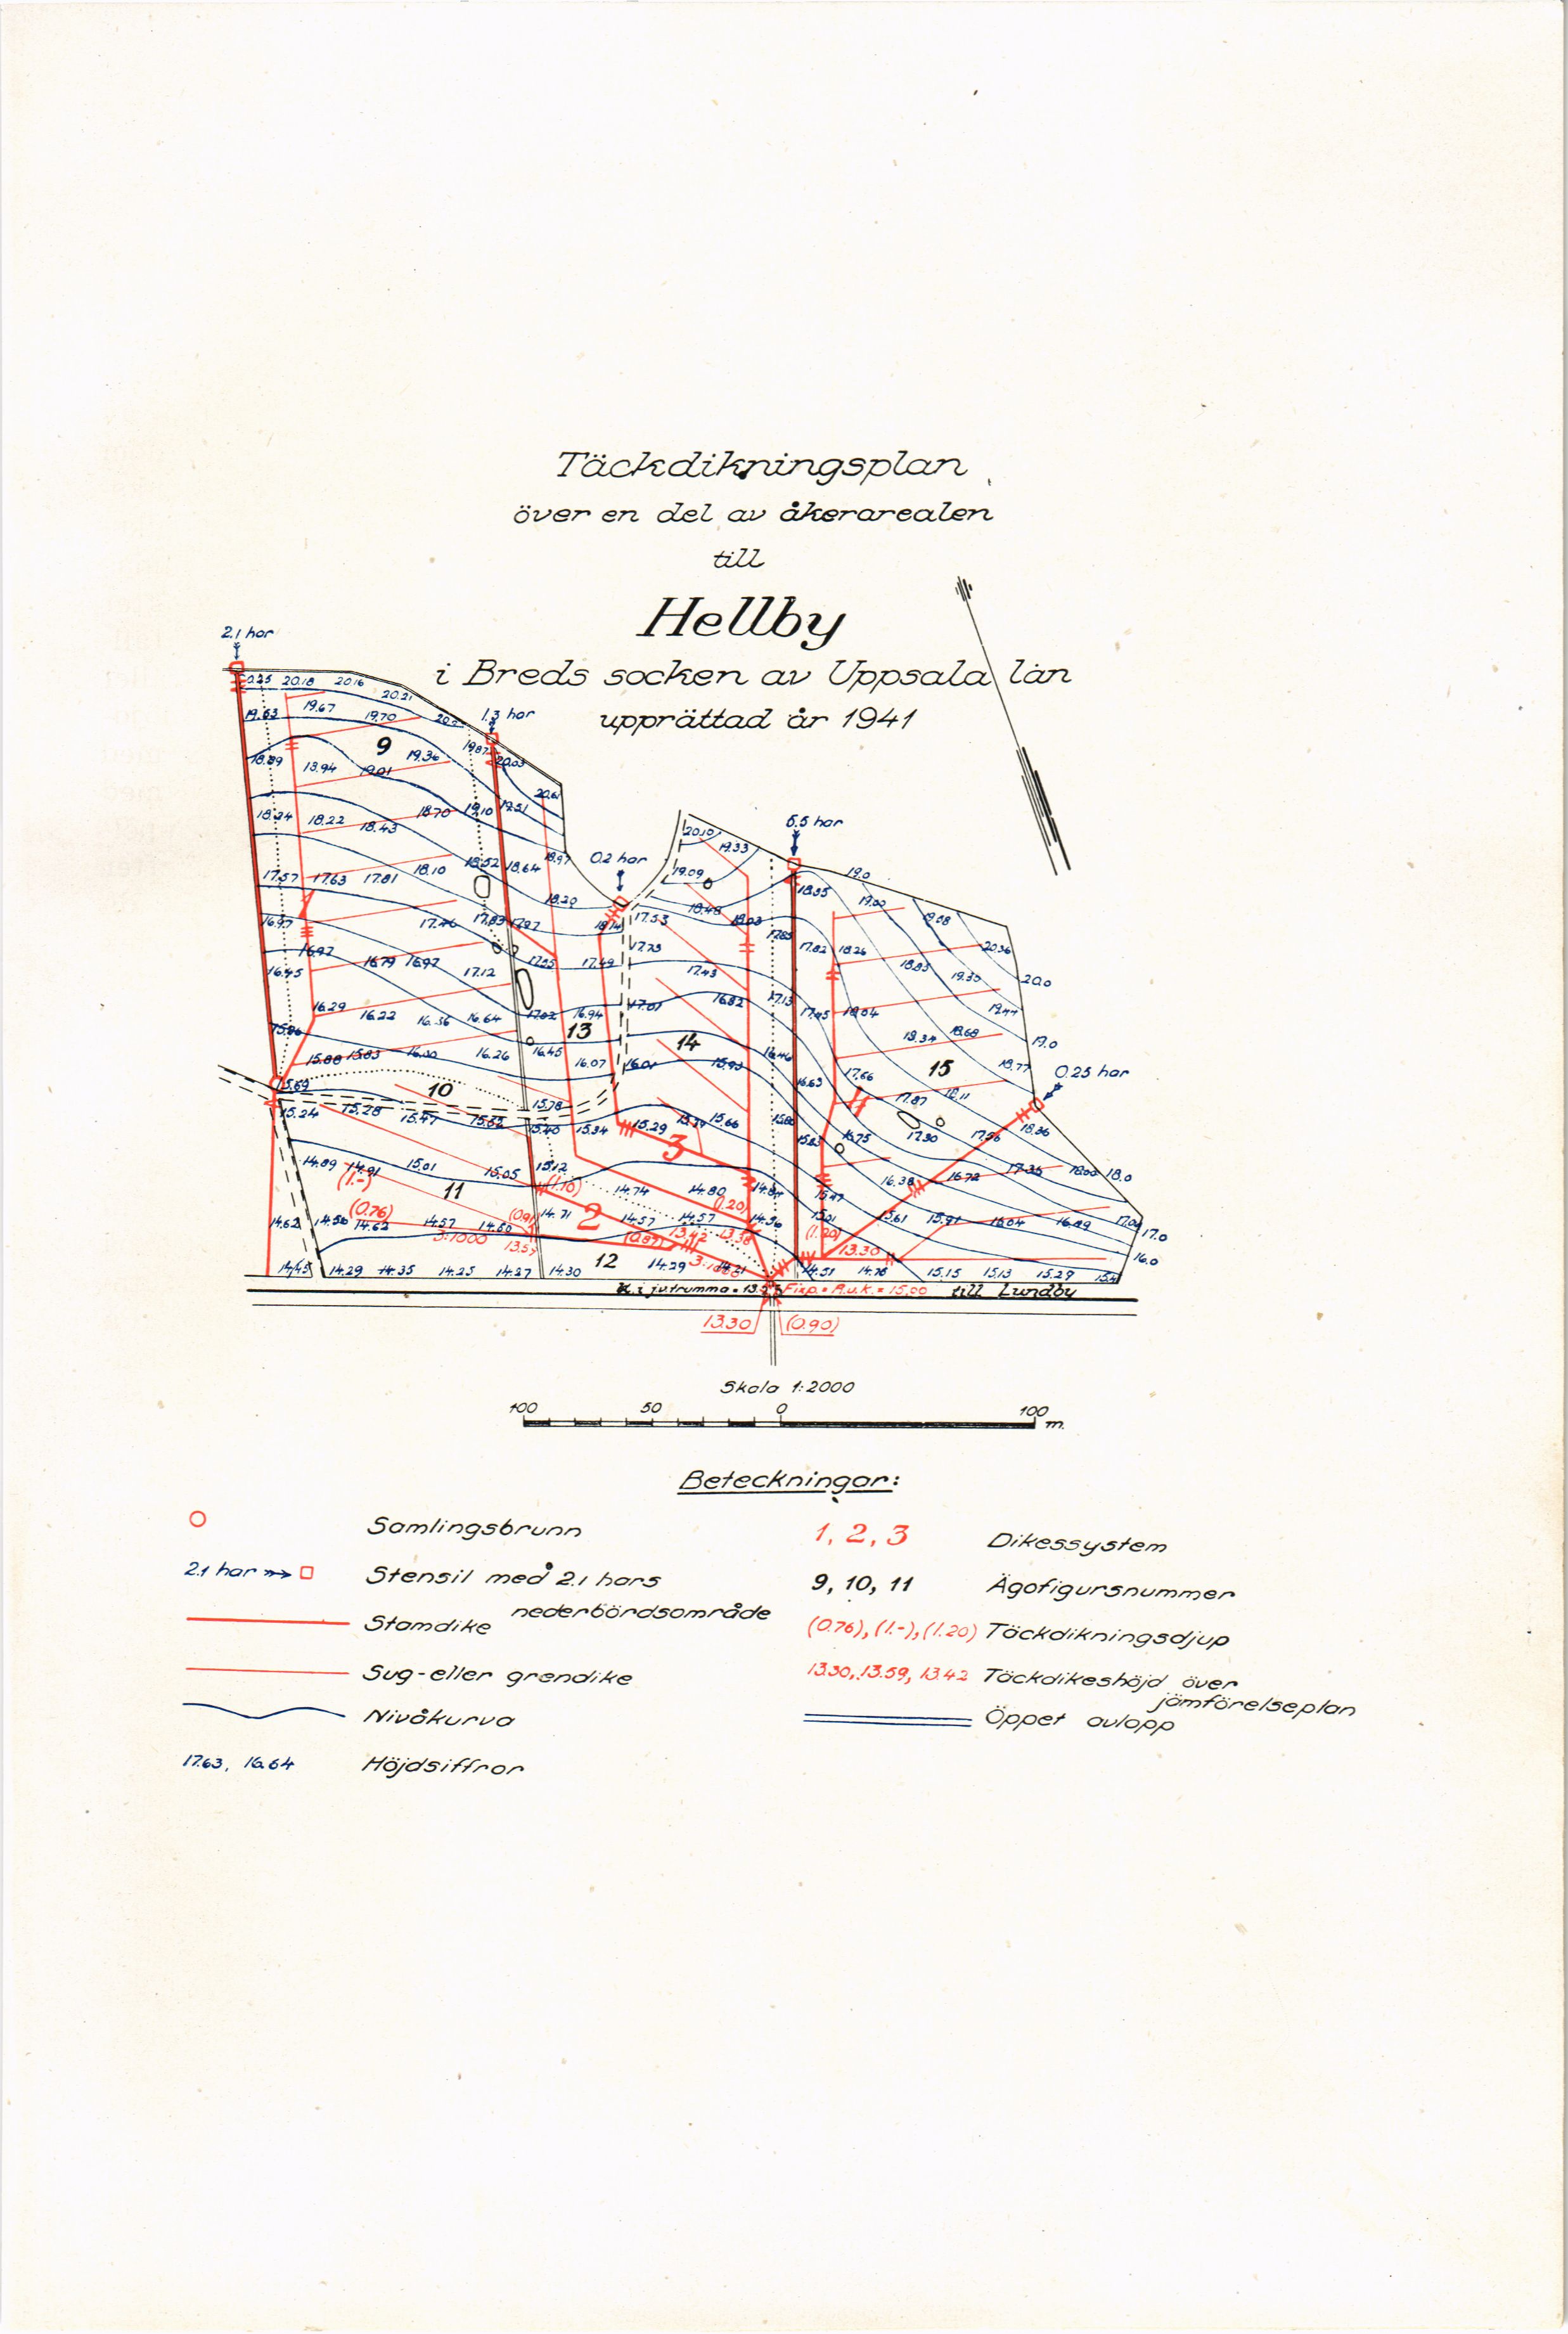 Täckdikningsplan
över en del av åkerarealen
till
Hellby
i Breds socken av Uppsala län
upprättad år 1941
2.1 har
1.3 har
0.2 har
5.5 har
0.25 har
20.18 20.16 20.21
19.63 19.67 19.70
9 19.36 19.87 20.03
18.89 18.94 19.01
20.61
18.24 18.22 18.43 18.70 19.10 19.51
20.10 19.33
17.57 17.63 17.81 18.10 18.52 18.64 18.97
19.09 18.35 19.0
18.20 18.48 18.03 19.00 19.08
16.97 17.46 17.83 17.97 18.14 17.53
16.92 16.79 16.92 17.12 17.49 17.73 17.43 17.82 18.26 18.83 19.35 20.36
16.45 20.0
16.29 16.22 16.36 16.64 17.02 16.94 17.01 16.82 17.13 17.45 18.04 19.44
13 14 18.34 18.68 19.0
15.88 15.83 16.00 16.26 16.45 16.07 16.01 15.93 16.46 15 18.77
10 16.63 17.66 17.87 18.11
15.69 15.78
15.24 15.28 15.47 15.62 15.40 15.34 15.29 15.66 17.30 17.96 18.36
3 16.75
14.89 14.91 15.01 15.05 15.12 16.38 16.72 17.35 18.00 18.0
(1.-) 11 (1.10) 14.74 14.80
(0.76) (1.20)
14.62 14.56 14.62 14.57 14.60 14.71 2 14.57 14.57 14.36 15.01 15.61 15.91 16.04 16.89 17.04 17.0
3:1000 (0.87) 13.42 13.36 (1.20) 13.30 16.0
14.45 14.29 14.35 14.25 14.27 14.30 12 14.29 14.51 14.76 15.15 15.13 15.29
Fixp. = R.u.k. = 15.00 till Lundby
13.30 (0.90)
Skala 1:2000
100 50 0 100 m.
Beteckningar:
Samlingsbrunn
2.1 har Stensil med 2.1 hars
nederbördsområde
Stamdike
Sug-eller grendike
Nivåkurva
17.63, 16.64 Höjdsiffror
1, 2, 3 Dikessystem
9, 10, 11 Ägofigursnummer
(0.76), (1.-), (1.20) Täckdikningsdjup
13.30, 13.59, 13.42 Täckdikeshöjd över
jämförelseplan
Öppet avlopp